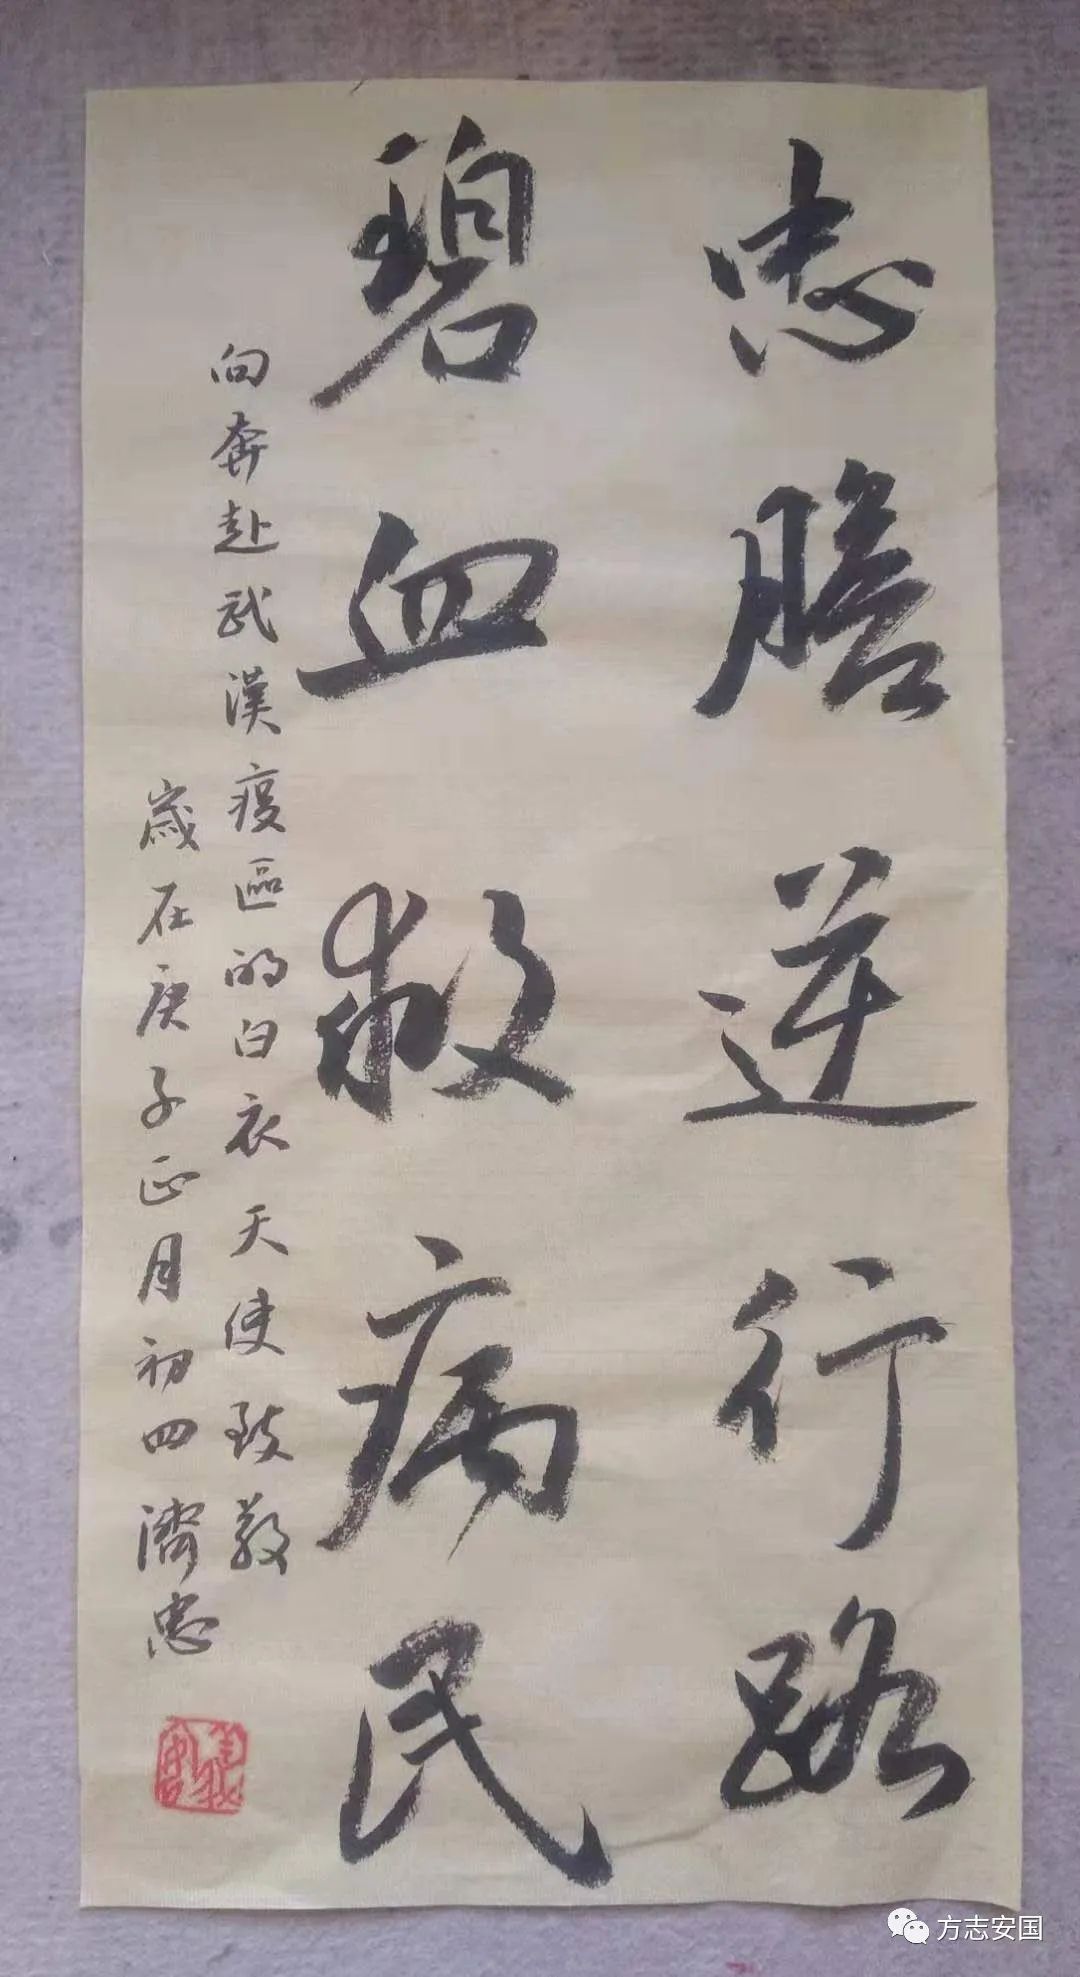 忠膽逆行路
碧血救病民
向奔赴武漢疫區的白衣天使致敬
歲在庚子正月初四濟忠
方志安国